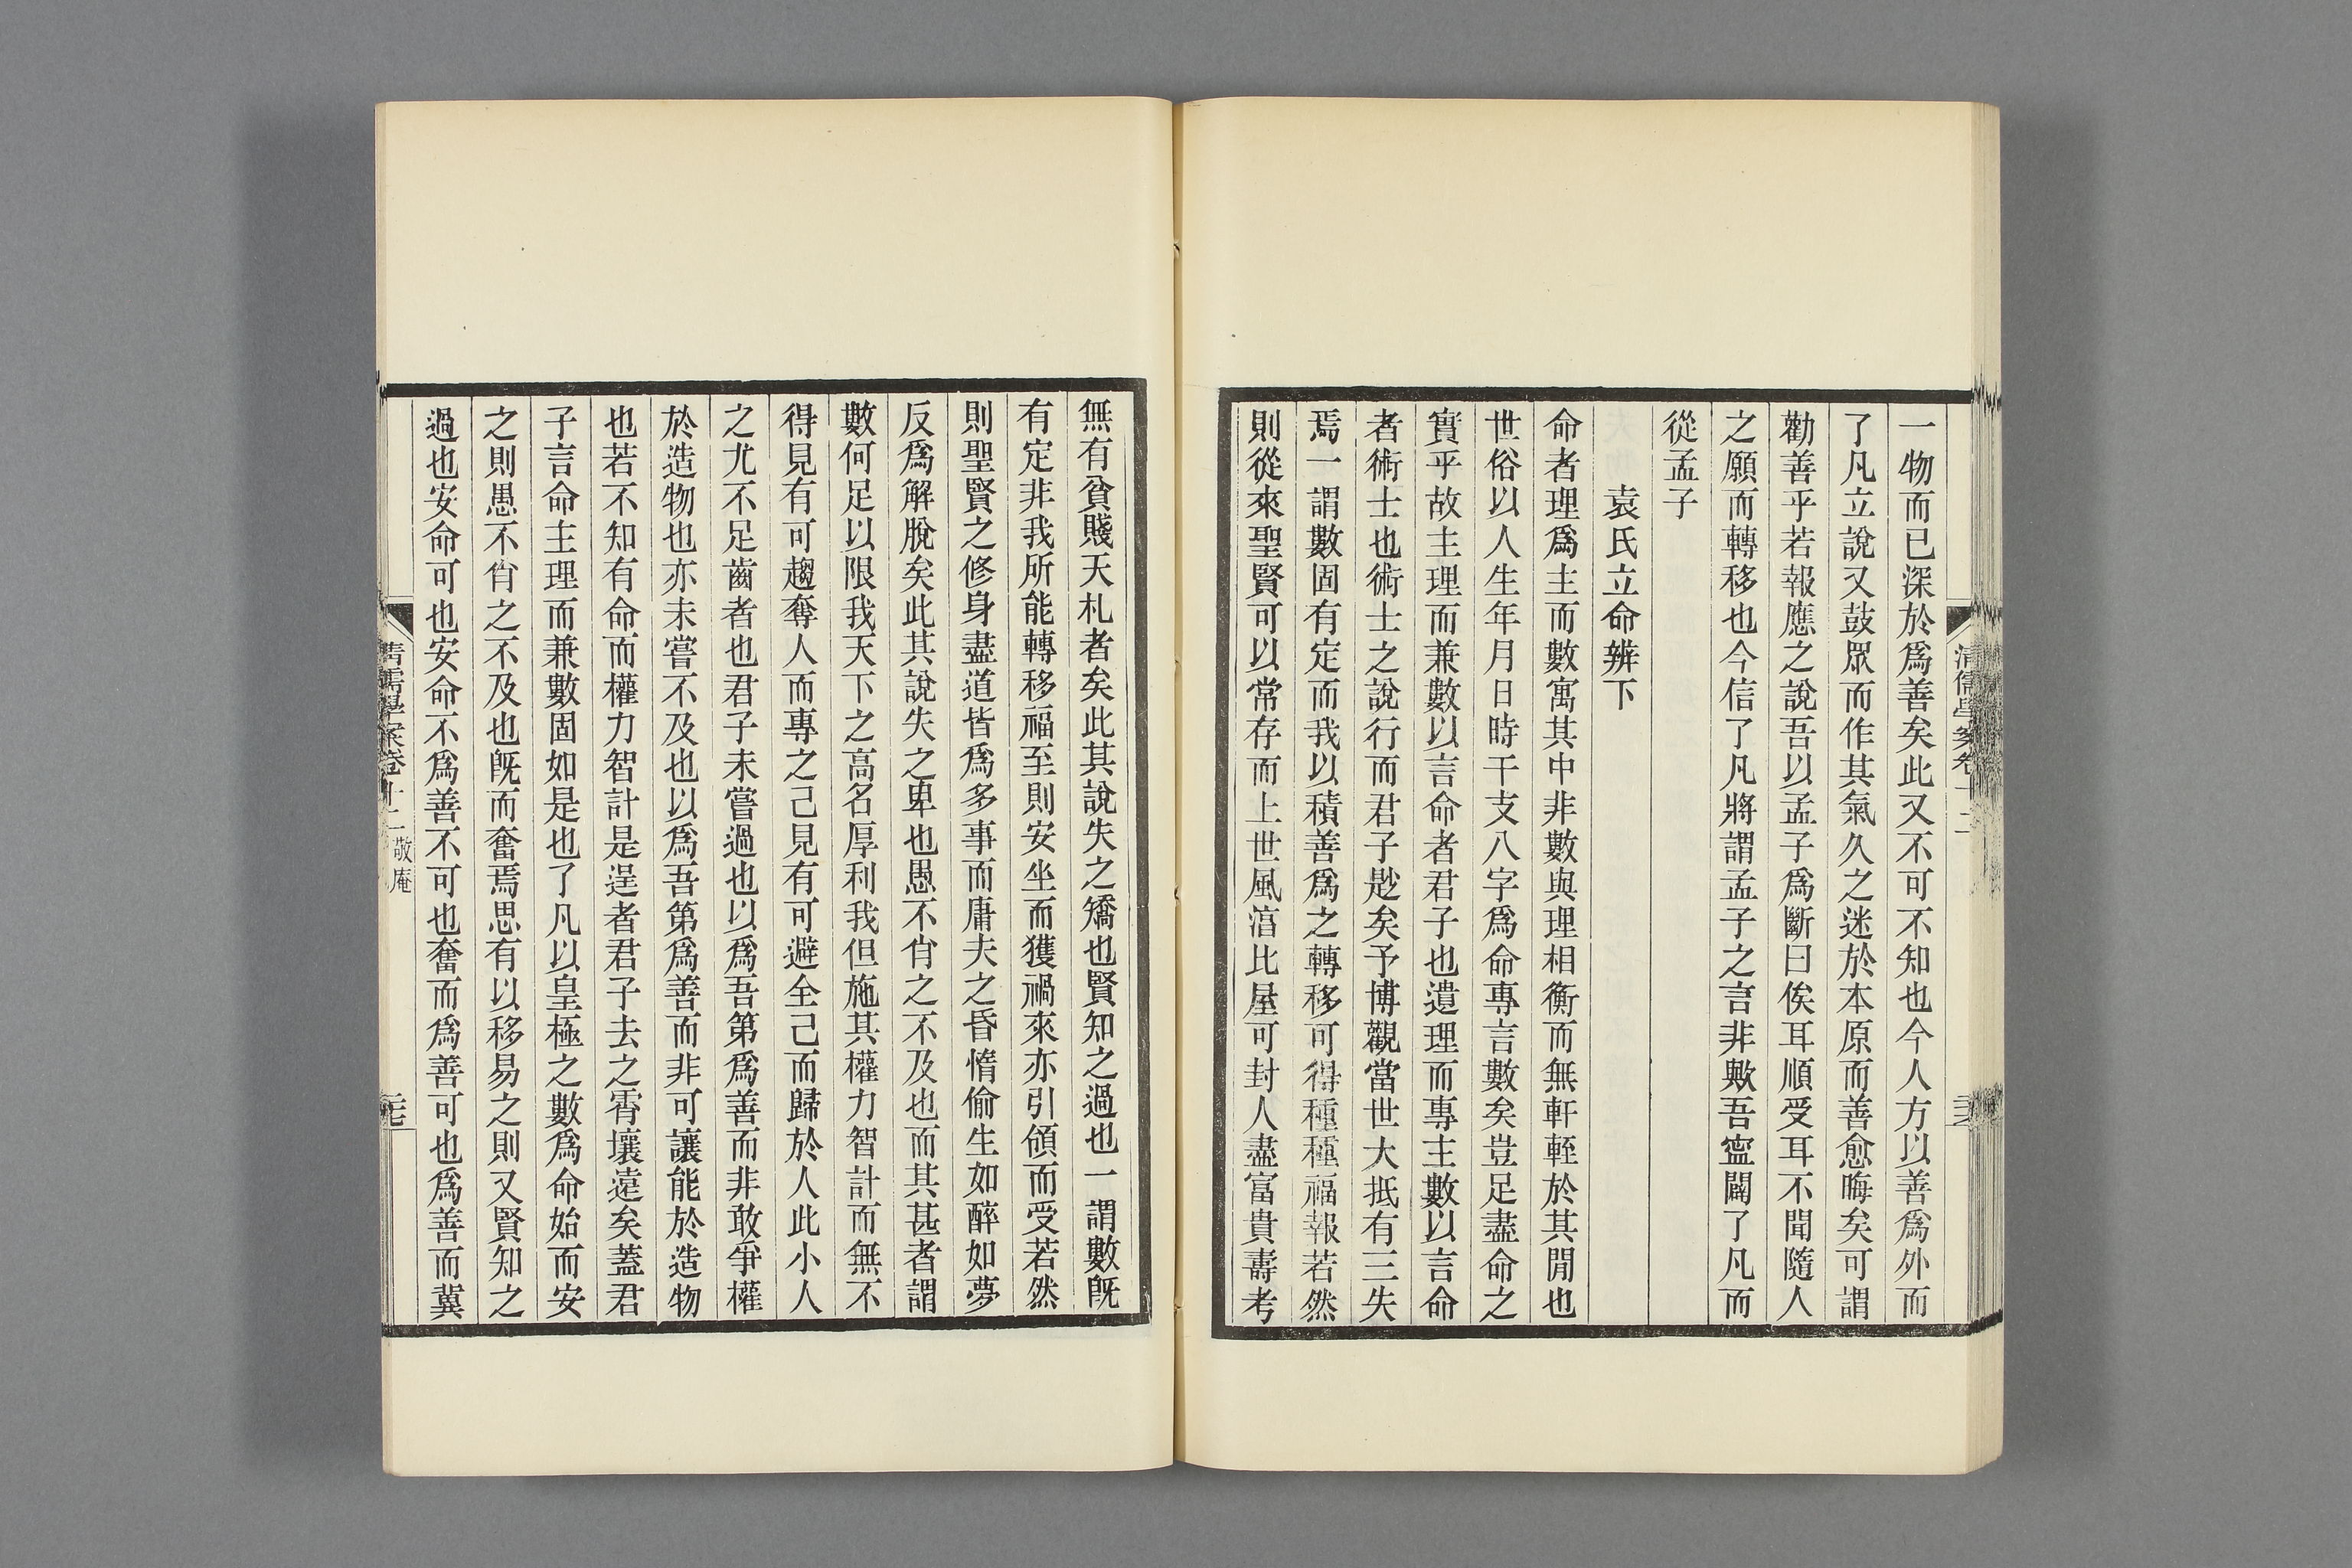 一物而已深於爲善矣此又不可不知也今人方以善爲外而
了凡立說又鼓眾而作其氣久之迷於本原而善愈晦矣可謂
勸善乎若報應之說吾以孟子爲斷曰俟耳順受耳不聞隨人
之願而轉移也今信了凡將謂孟子之言非歟吾寍闢了凡而
從孟子
袁氏立命辨下
命者理爲主而數寓其中非數與理相衡而無軒輊於其閒也
世俗以人生年月日時干支八字爲命專言數矣豈足盡命之
實乎故主理而兼數以言命者君子也遺理而專主數以言命
者術士也術士之說行而君子尟矣予博觀當世大抵有三失
焉一謂數固有定而我以積善爲之轉移可得種種福報若然
則從來聖賢可以常存而上世風淳比屋可封人盡富貴壽考
無有貧賤天札者矣此其說失之矯也賢知之過也一謂數旣
有定非我所能轉移福至則安坐而獲禍來亦引領而受若然
則聖賢之修身盡道皆爲多事而庸夫之昏惰偷生如醉如夢
反爲解脫矣此其說失之卑也愚不肖之不及也而其甚者謂
數何足以限我天下之高名厚利我但施其權力智計而無不
得見有可趨奪人而專之己見有可避全己而歸於人此小人
之尤不足齒者也君子未嘗過也以爲吾第爲善而非敢爭權
於造物也亦未嘗不及也以爲吾第爲善而非可讓能於造物
也若不知有命而權力智計是逞者君子去之霄壤遠矣蓋君
子言命主理而兼數固如是也了凡以皇極之數爲命始而安
之則愚不肖之不及也旣而奮焉思有以移易之則又賢知之
過也安命可也安命不爲善不可也奮而爲善可也爲善而冀
清儒學案卷十二 敬庵